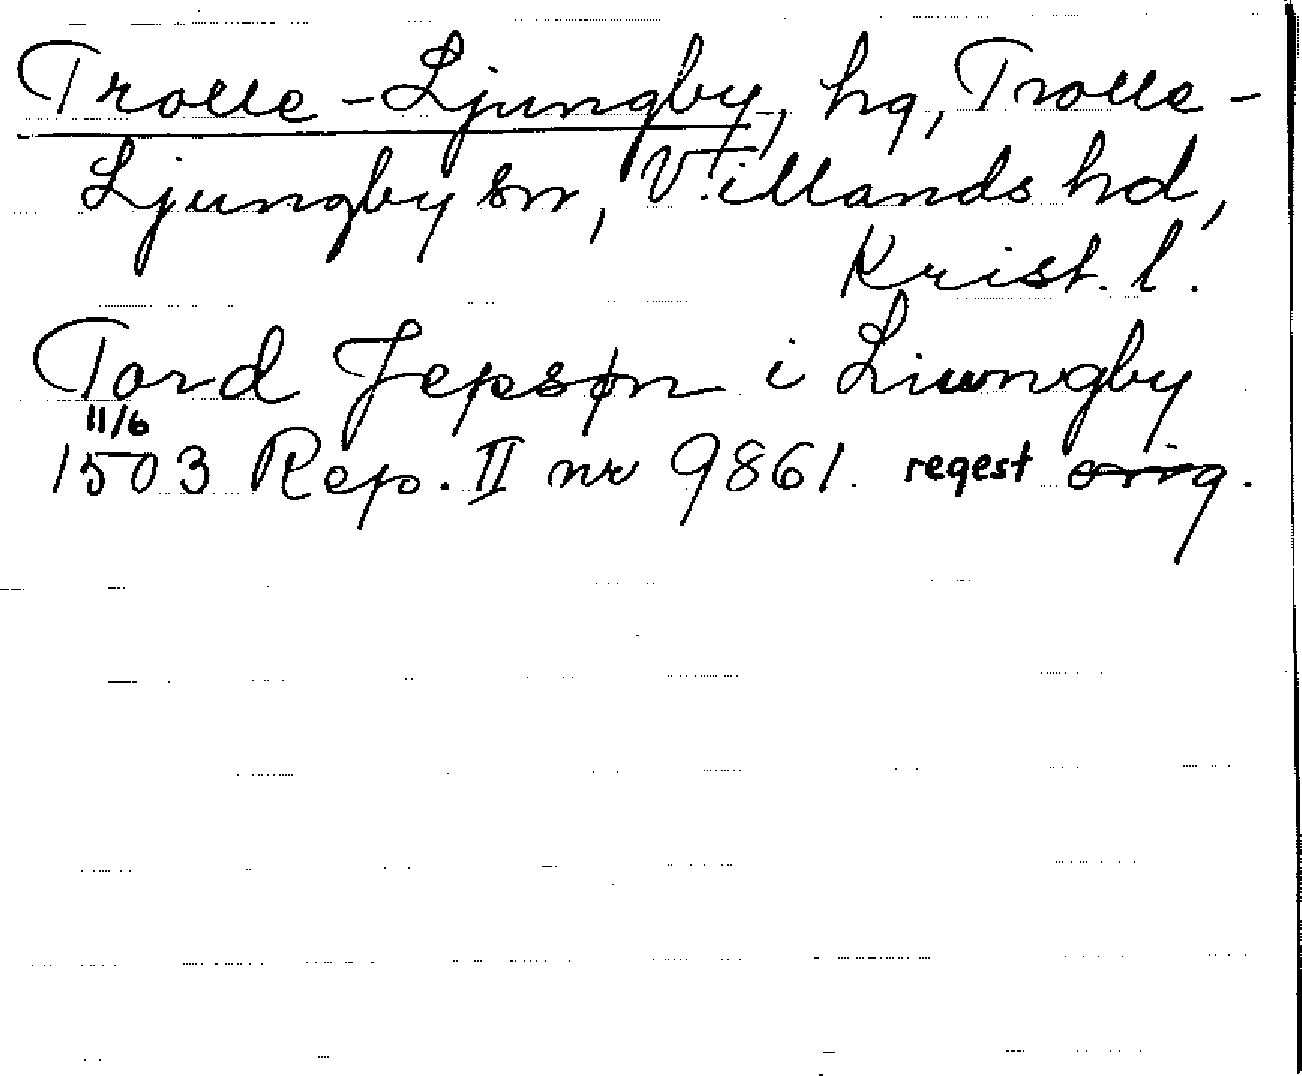 Trolle-Ljungby, hg, Trolle-
Ljungby sn, Villands hd,
Krist. l.
Tord Jepsøn i Liwngby
11/6
1503 Rep. II nr 9861. regest orig.